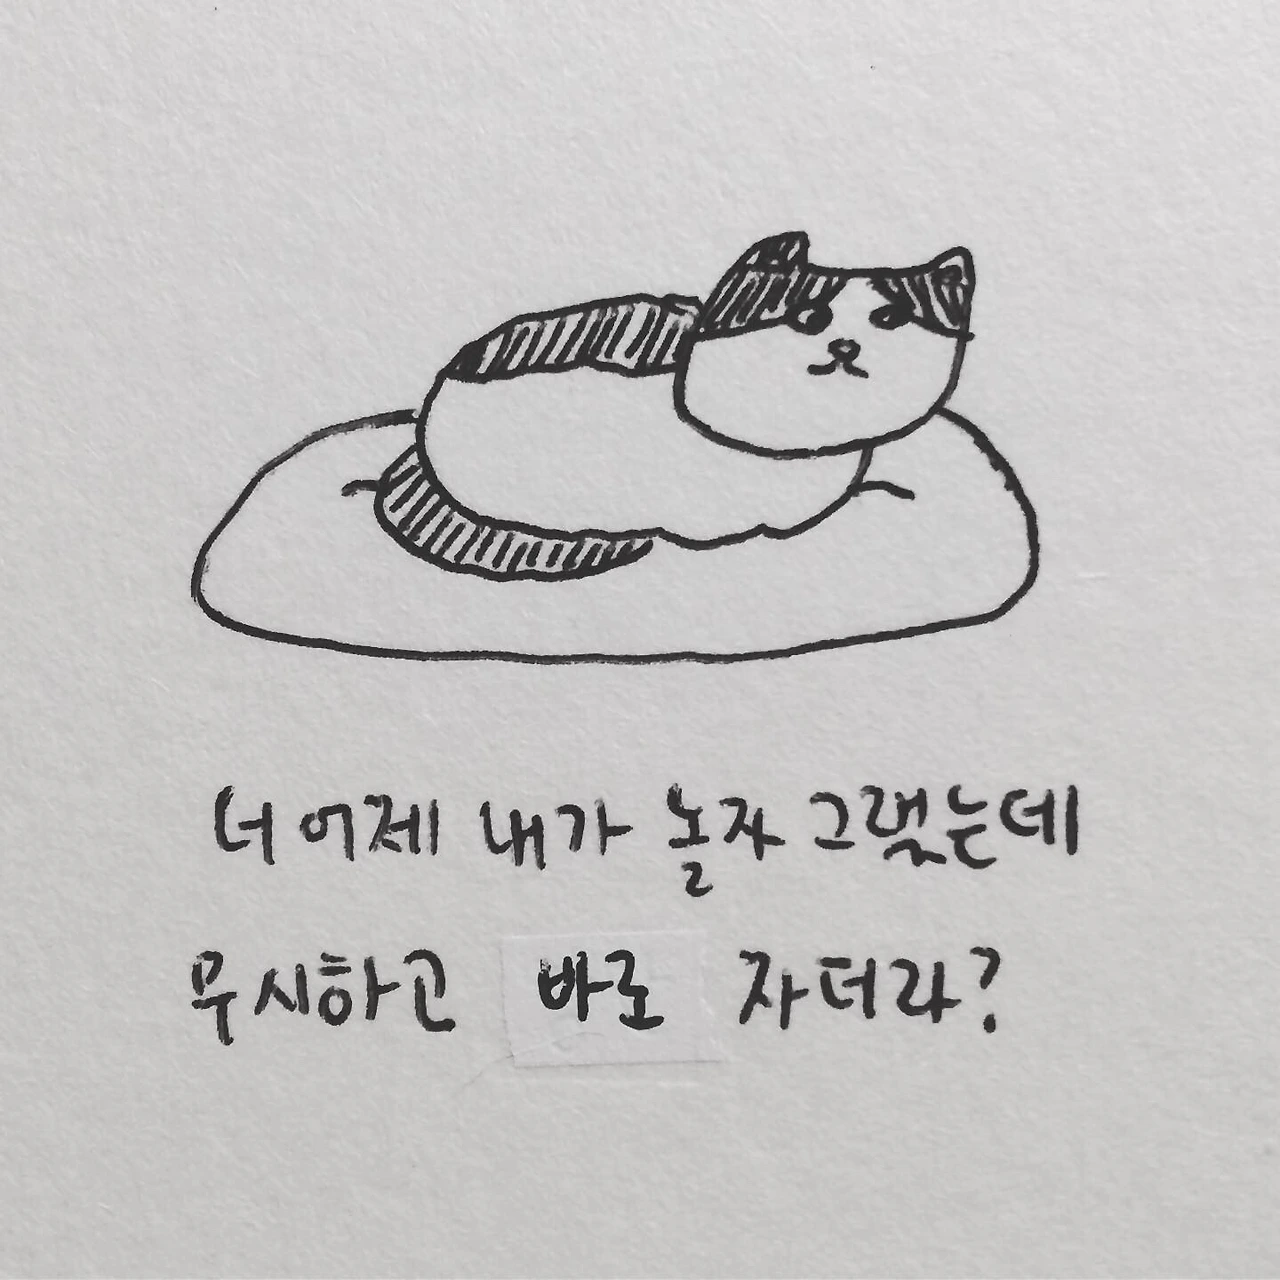 너 어제 내가 놀자 그랬는데
무시하고 바로 자더라?